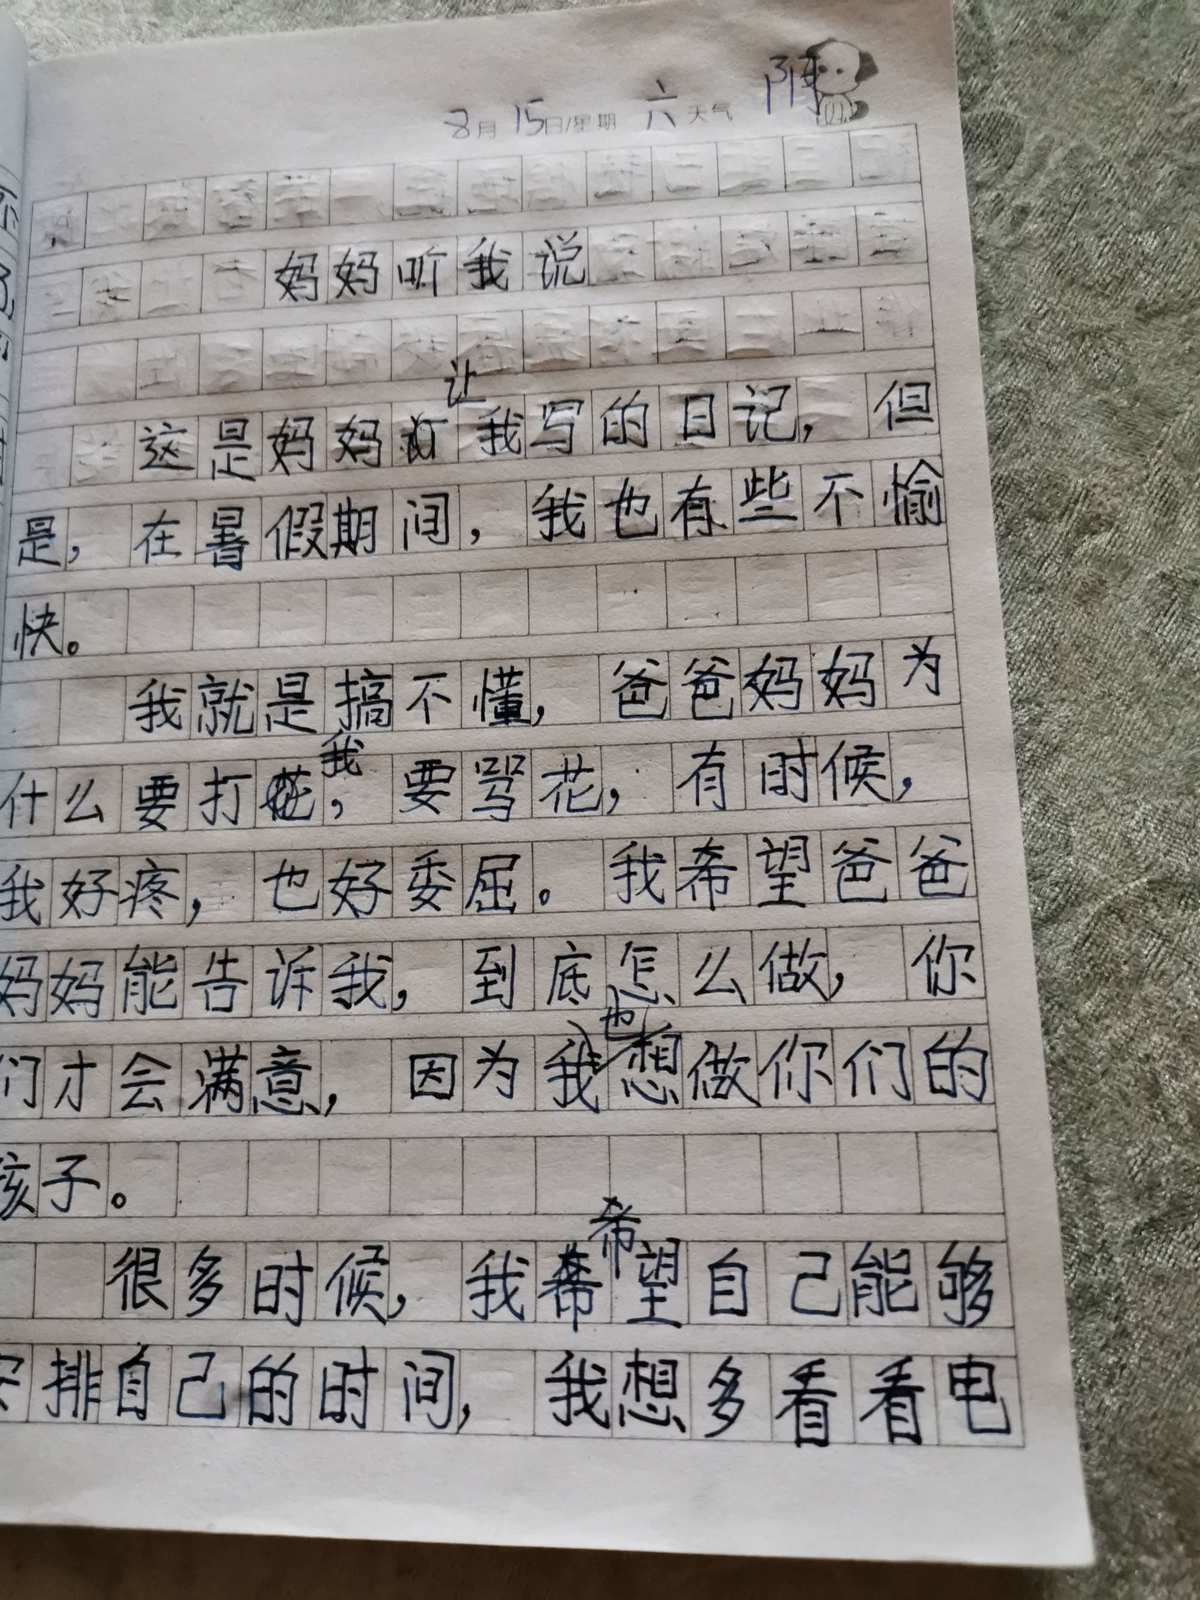 8月15日/星期 六 天气 阴
妈妈听我说
这是妈妈让我写的日记，但
是，在暑假期间，我也有些不愉
快。
我就是搞不懂，爸爸妈妈为
什么要打我，要骂花，有时候，
我好疼，也好委屈。我希望爸爸
妈妈能告诉我，到底怎么做，你
们才会满意，因为我也想做你们的
孩子。
很多时候，我希望自己能够
安排自己的时间，我想多看看电